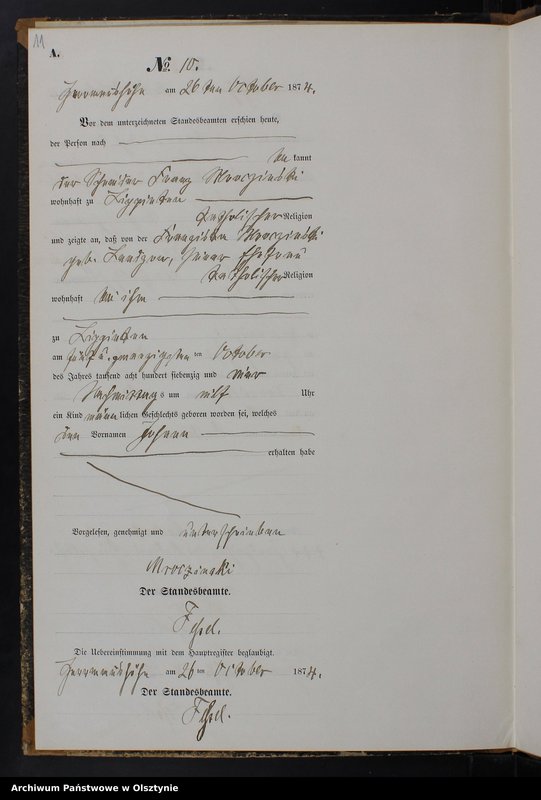 11
A.
No. 10.
am 26 ten October 1874.
Vor dem unterzeichneten Standesbeamten erschien heute,
der Person nach
be kannt
der Schneider Franz Mroczinski
wohnhaft zu Lippinken
katholischer Religion
und zeigte an, daß von der Franziska Mroczinski
geb. seiner Ehefrau
katholischer Religion
wohnhaft bei ihm
zu Lippinken
am fünf u. zwanzigsten ten October
des Jahres tausend acht hundert siebenzig und vier
Nachmittag s um elf Uhr
ein Kind männ lichen Geschlechts geboren worden sei, welches
den Vornamen Johann
erhalten habe
Vorgelesen, genehmigt und unterschrieben
Mroczinski
Der Standesbeamte.
Die Uebereinstimmung mit dem Hauptregister beglaubigt.
am 26 ten October 1874.
Der Standesbeamte.
Archiwum Państwowe w Olsztynie